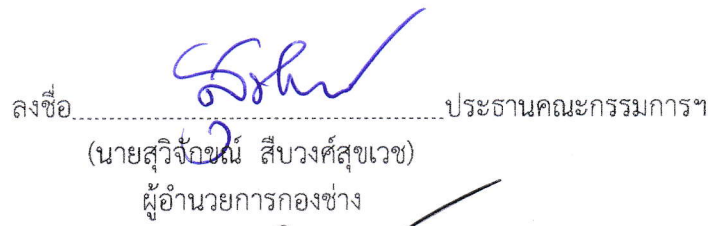 ลงชื่อ........................................ประธานคณะกรรมการฯ
(นายสุวิจักขณ์ สืบวงศ์สุขเวช)
ผู้อำนวยการกองช่าง